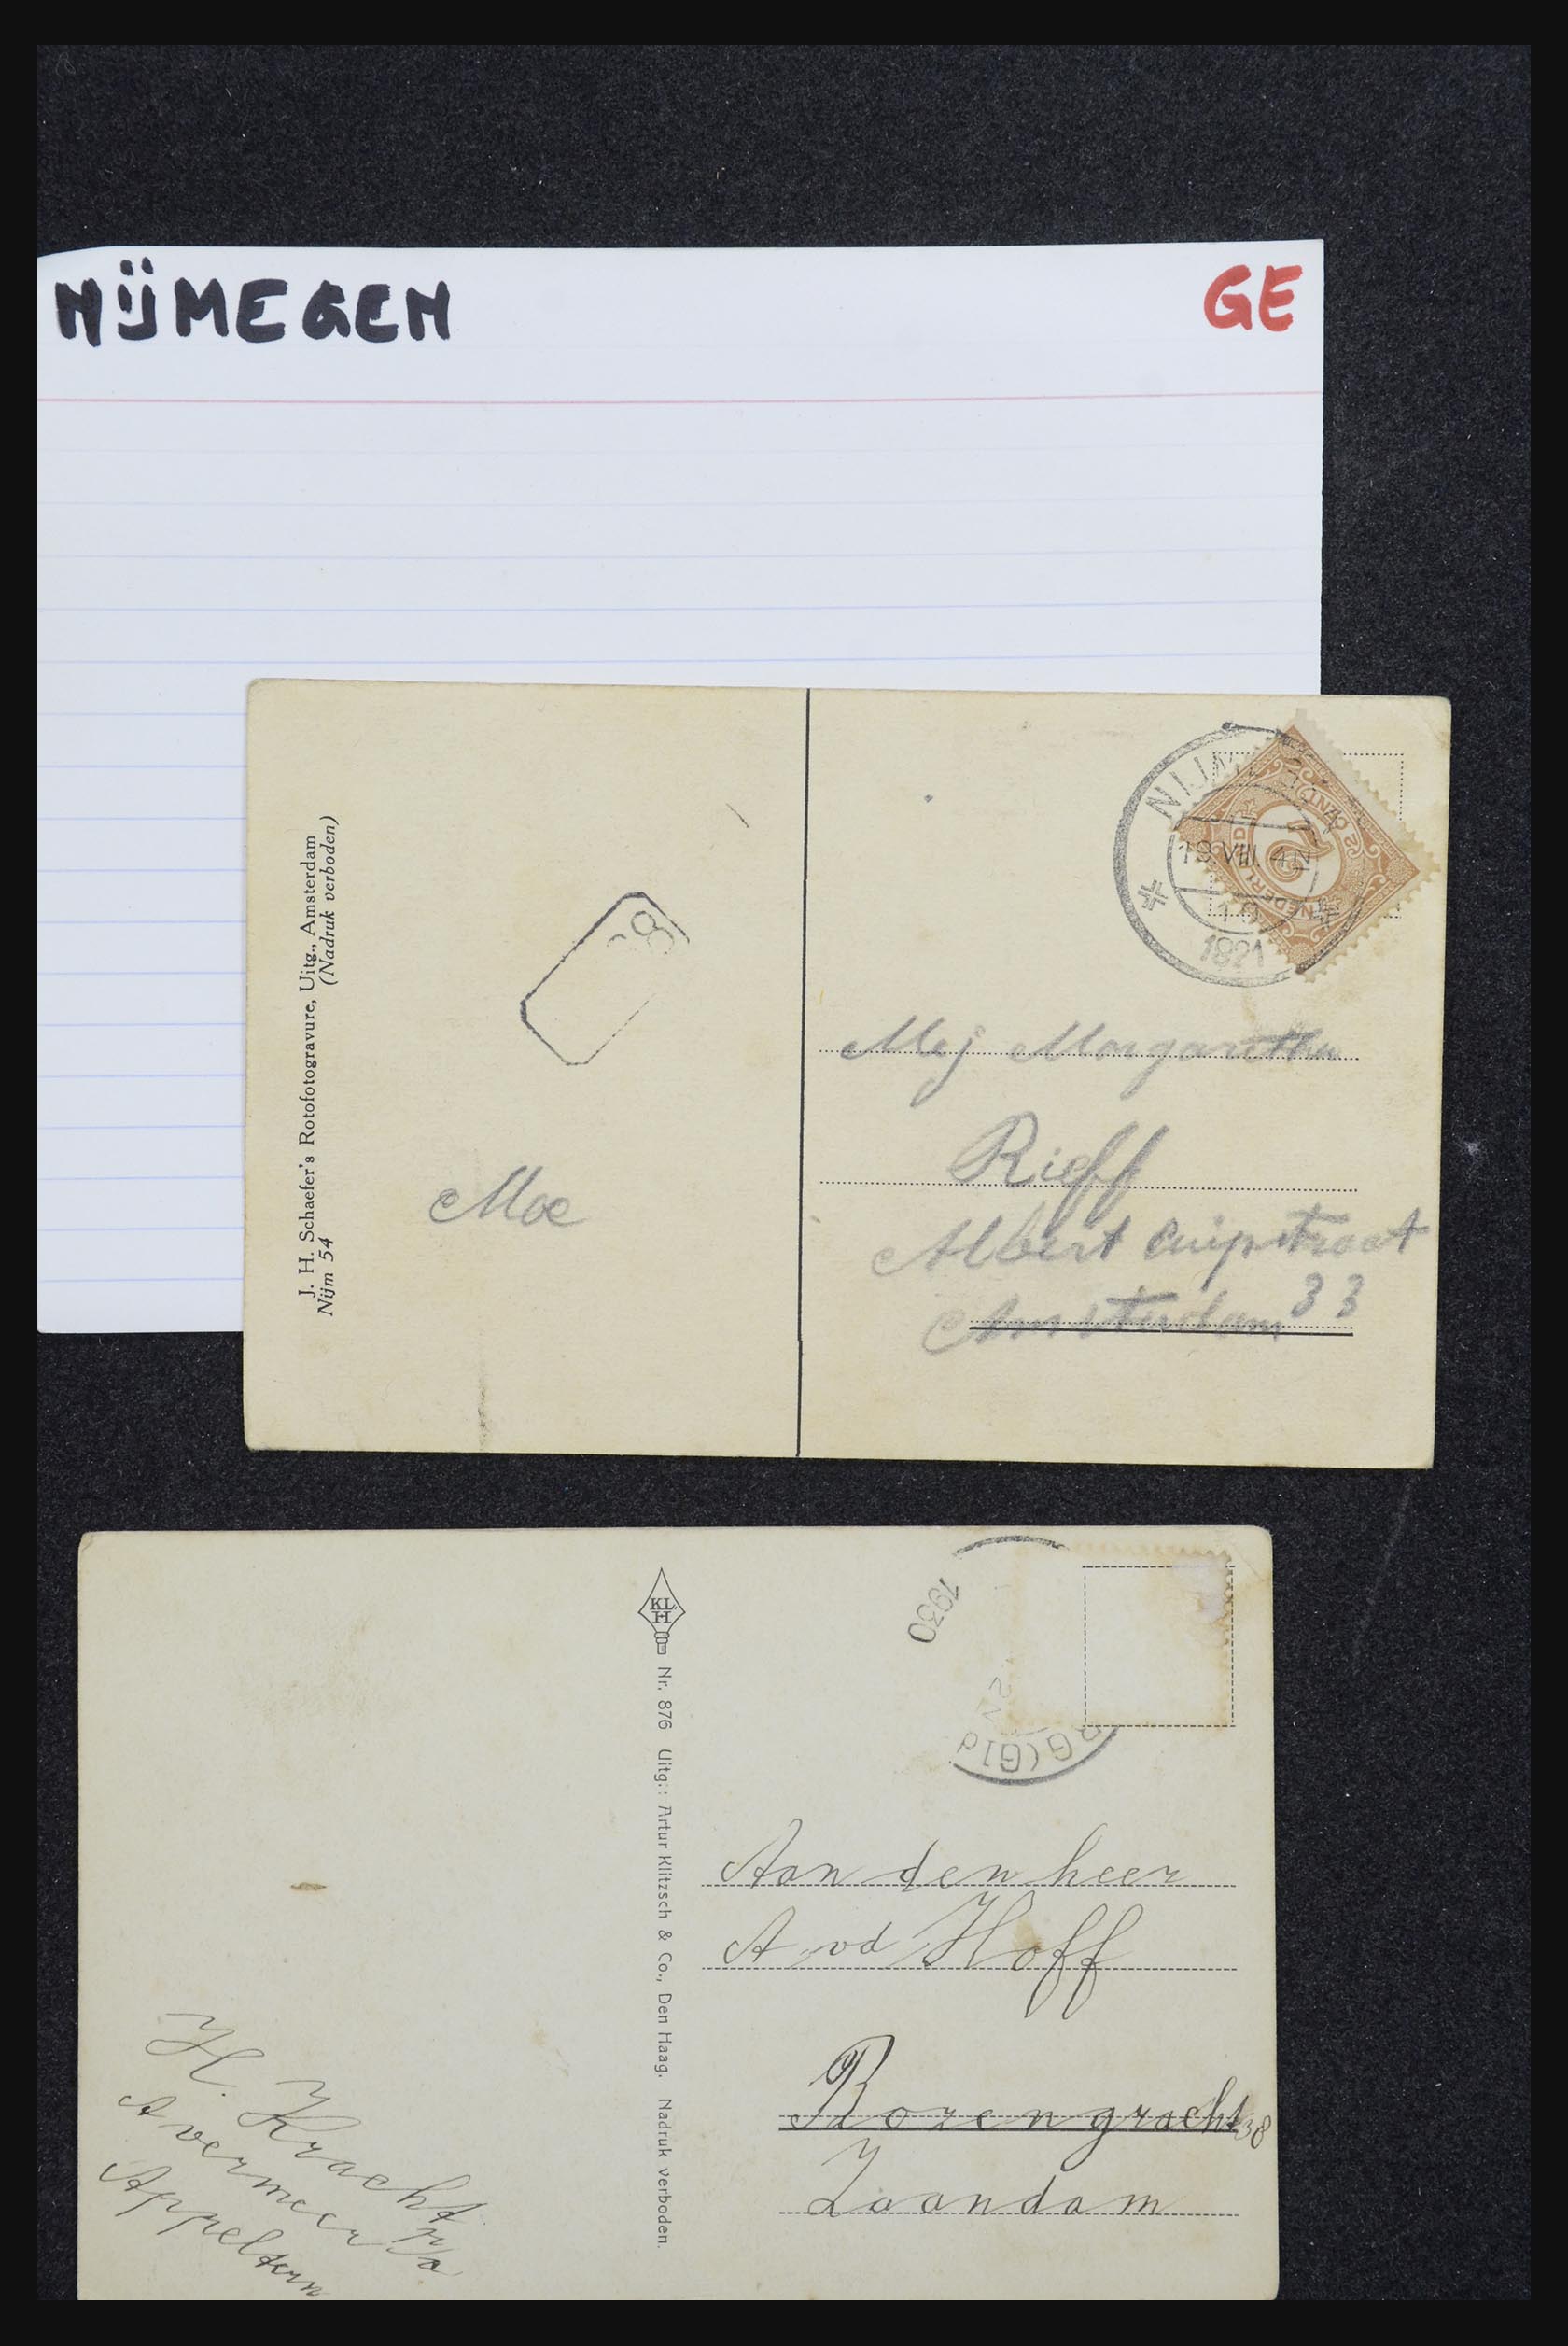 NIJMEGEN
GE
J. H. Schaefer's Rotofotogravure, Uitg., Amsterdam
(Nadruk verboden)
Nijm 54
NIJM
19 VIII. 4N
1921
NEDERLAND
2 CENT
2
Moe
Mej Margaretha
Rieff
Albert Cuipstraat
33
Amsterdam
KL.
H
Nr. 876 Uitg.: Artur Klitzsch & Co., Den Haag. Nadruk verboden.
1930
2N
RG(G)d
Aan den heer
A vd Hoff
Rozengracht 38
Zaandam
H. Kracht
A vermeer
Appeltern